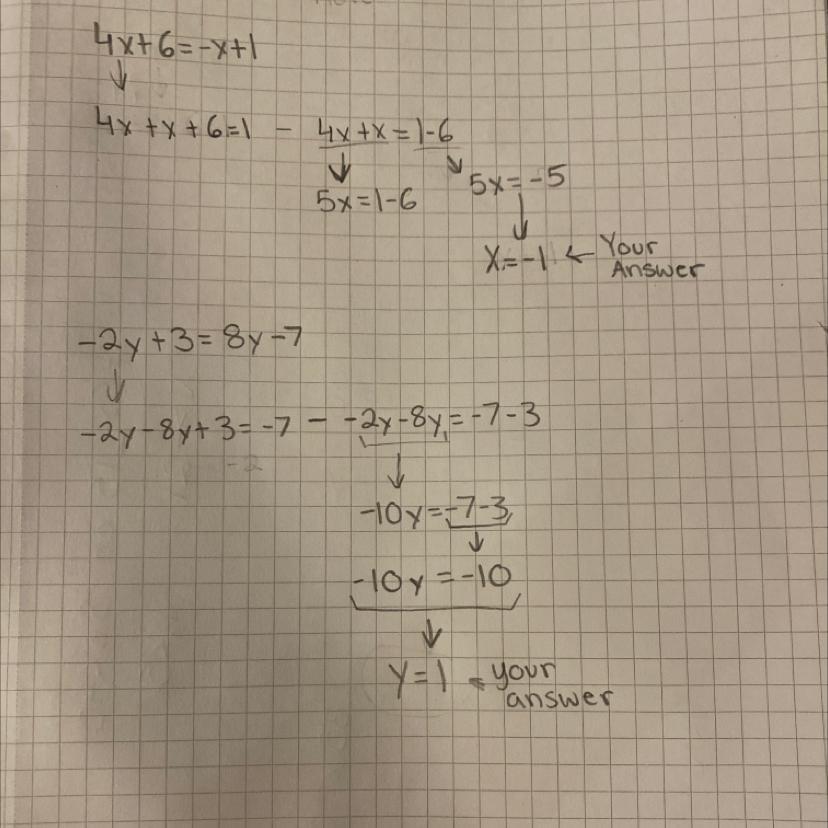 4x+6=-x+1
4x+x+6=1 - 4x+x=1-6
5x=1-6
5x=-5
x=-1 ← Your
Answer
-2y+3=8y-7
-2y-8y+3=-7 - -2y-8y=-7-3
-10y=-7-3
-10y=-10
y=1 your
answer